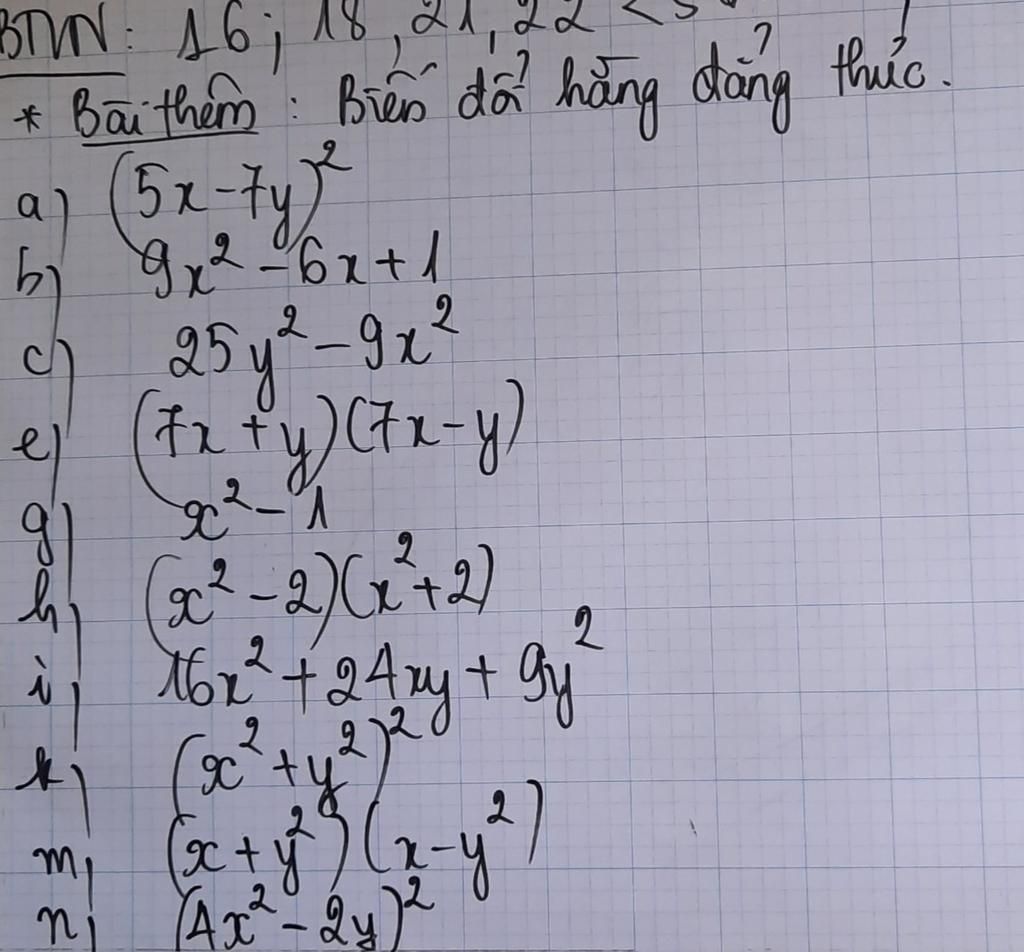 BTVN: 16; 18, 21, 22
* Bài thêm: Biến đổi hằng đẳng thức.
a) (5x-7y)²
b) 9x² - 6x + 1
c) 25y² - 9x²
e) (7x + y)(7x - y)
g) x² - 1
h) (x² - 2)(x² + 2)
i) 16x² + 24xy + 9y²
k) (x² + y²)²
m) (x + y²)(x - y²)
n) (4x² - 2y)²